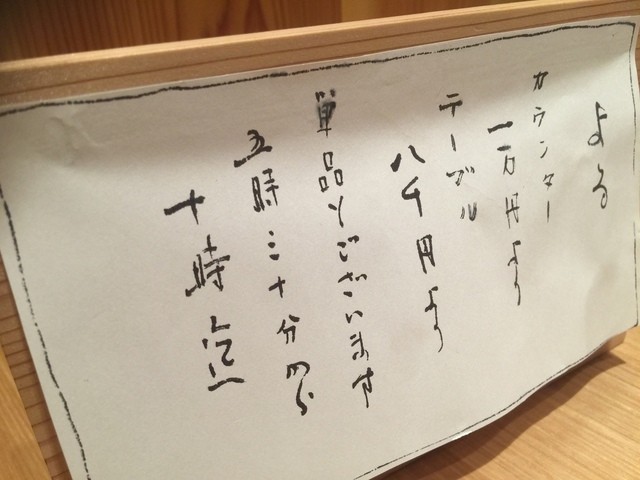 よる
カウンター
一万円より
テーブル
八千円より
単品もございます
五時三十分から
十時迄